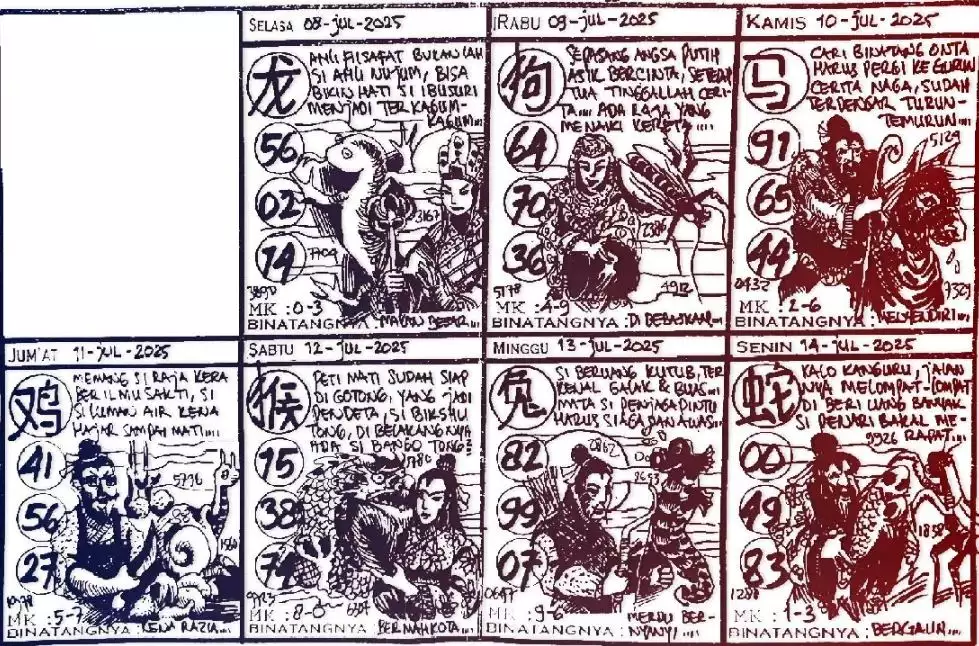 SELASA 08-JUL-2025
龙
AHLI FILSAFAT BUKANLAH
SI AHLI NUJUM, BISA
BIKIN HATI SI IBUSURI
MENJADI TERKAGUM-
KAGUM....
56
02
14
3167
7704
3890
MK : 0-3
BINATANGNYA : BESAR....
RABU 09-JUL-2025
狗
SEPASANG ANGSA PUTIH
ASIK BERCINTA, SETENGAH
TUA TINGGALLAH CERI-
TA.... ADA RAJA YANG
MENAIKI KERETA....
64
70
36
2386
5178
4912
MK : 4-9
BINATANGNYA : DI BEBASKAN....
KAMIS 10-JUL-2025
马
CARI BINATANG ONTA
HARUS PERGI KE GURUN
CERITA NAGA, SUDAH
TERDENGAR TURUN-
TEMURUN....
5129
91
65
44
0432
7329
MK : 2-6
BINATANGNYA : MENYENDIRI....
JUM'AT 11-JUL-2025
鸡
MEMANG SI RAJA KERA
BERILMU SAKTI, SI
SILUMAN AIR KENA
HAJAR SAMPAI MATI....
41
56
27
5796
MK : 5-7
BINATANGNYA : KENA RAZIA....
SABTU 12-JUL-2025
猴
PETI MATI SUDAH SIAP
DI GOTONG, YANG JADI
PENDETA, SI BIKSHU
TONG, DI BELAKANGNYA
ADA SI BANGO TONG?
15
38
74
6307
MK : 8-0
BINATANGNYA : BERMAHKOTA....
MINGGU 13-JUL-2025
兔
SI BERUANG KUTUB, TER
KENAL GALAK & BUAS....
MATA SI PENJAGA PINTU
HARUS SIAGA DAN AWAS....
0862
82
99
07
0647
MK : 9-6
BINATANGNYA : MERDU BER-
NYANYI....
SENIN 14-JUL-2025
蛇
KALO KANGURU, JALAN
NYA MELOMPAT-LOMPAT
DI BERI UANG BANYAK
SI PENARI BAKAL ME-
RAPAT....
9926
00
49
83
1838
1288
MK : 1-3
BINATANGNYA : BERGAUN....